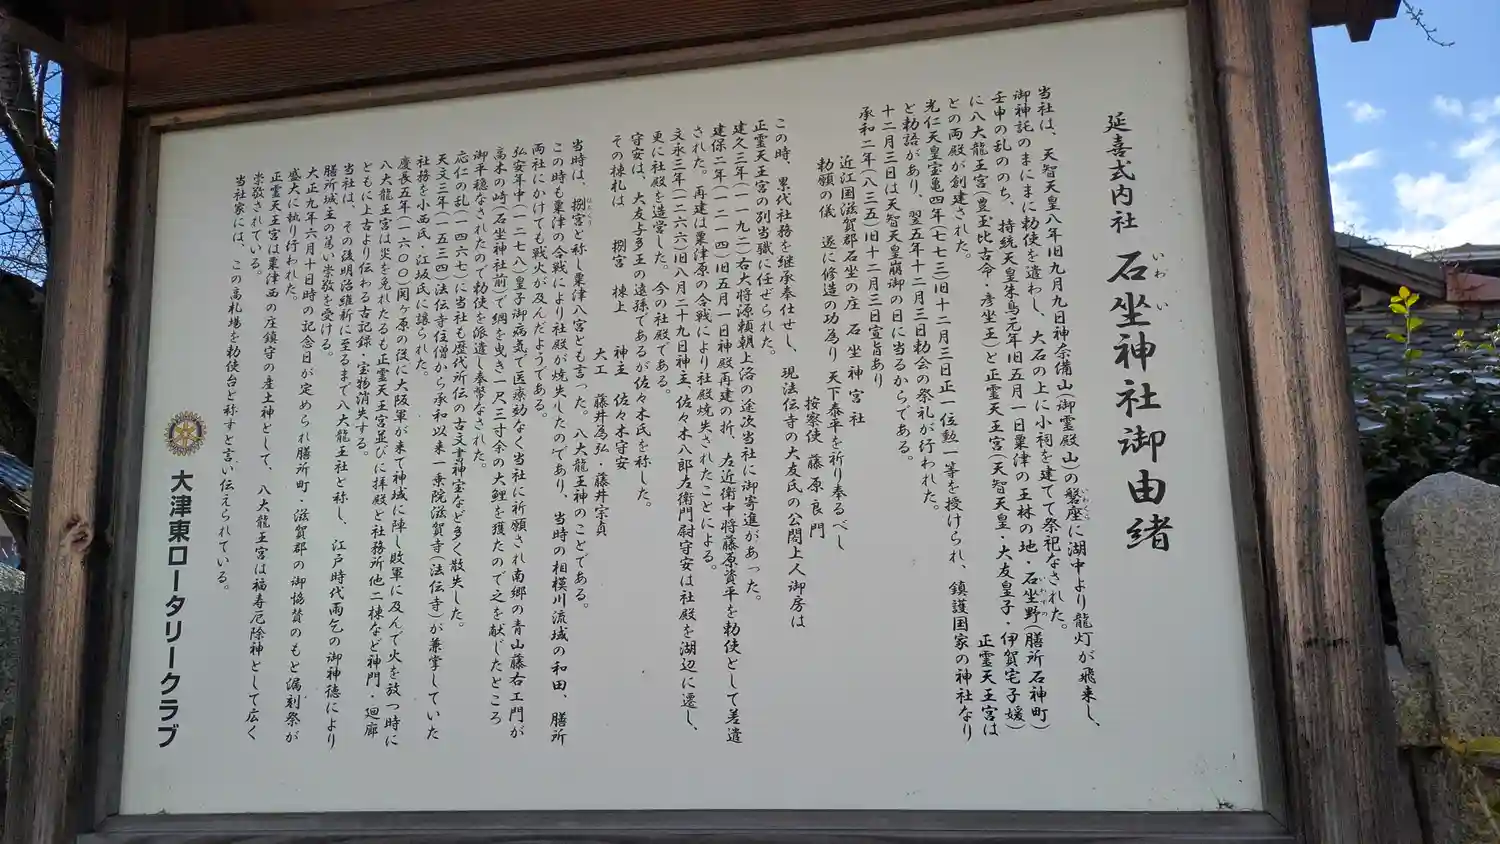 延喜式内社 石坐神社御由緒
いわい
当社は、天智天皇八年旧九月九日神奈備山(御霊殿山)の磐座に湖中より龍灯が飛来し、
いわくら
御神託のまにまに勅使を遣わし、大石の上に小祠を建てて祭祀なされた。
壬申の乱ののち、持統天皇朱鳥元年旧五月一日粟津の王林の地・石坐野(膳所石神町)
に八大龍王宮(豊玉比古命・彦坐王)と正霊天王宮(天智天皇・大友皇子・伊賀宅子媛)
との両殿が創建された。 正霊天王宮は
光仁天皇宝亀四年(七七三)旧十二月三日正一位勲一等を授けられ、鎮護国家の神社なり
と勅語があり、翌五年十二月三日勅会の祭礼が行われた。
十二月三日は天智天皇崩御の日に当るからである。
承和二年(八三五)旧十二月三日宣旨あり
近江国滋賀郡石坐の庄 石坐神宮社
勅願の儀 遂に修造の功為り 天下泰平を祈り奉るべし
按察使 藤原良門
この時、累代社務を継承奉仕せし、現法伝寺の大友氏の公閤上人御房は
正霊天王宮の別当職に任ぜられた。
建久三年(一一九二)右大将源頼朝上洛の途次当社に御寄進があった。
建保二年(一二一四)旧五月一日神殿再建の折、左近衛中将藤原資平を勅使として差遣
された。再建は粟津原の合戦により社殿焼失されたことによる。
文永三年(一二六六)旧八月二十九日神主、佐々木八郎左衛門尉守安は社殿を湖辺に遷し、
更に社殿を造営した。今の社殿である。
守安は、大友与多王の遠孫であるが佐々木氏を称した。
その棟札は 捌宮 棟上 神主 佐々木守安
大工 藤井為弘・藤井宗貞
当時は、捌宮と称し粟津八宮とも言った。八大龍王神のことである。
この時も粟津の合戦により社殿が焼失したのであり、当時の相模川流域の和田、膳所
両社にかけても戦火が及んだようである。
弘安年中(一二七八)皇子御病気で医療効なく当社に祈願され南郷の青山藤右エ門が
高木の崎(石坐神社前)で網を曳き一尺三寸余の大鯉を獲たので之を献じたところ
御平穏なされたので勅使を派遣し奉幣なされた。
応仁の乱(一四六七)に当社も歴代所伝の古文書神宝など多く散失した。
天文三年(一五三四)法伝寺住僧から承和以来一乗院滋賀寺(法伝寺)が兼掌していた
社務を小西氏・江坂氏に譲られた。
慶長五年(一六〇〇)関ヶ原の役に大阪軍が来て神域に陣し敗軍に及んで火を放つ時に
八大龍王宮は災を免れたるも正霊天王宮並びに拝殿と社務所他二棟など神門・廻廊
ともに上古より伝わる古記録・宝物消失する。
当社は、その後明治維新に至るまで八大龍王社と称し、江戸時代雨乞の御神徳により
膳所城主の篤い崇敬を受ける。
大正九年六月十日時の記念日が定められ膳所町・滋賀郡の御協賛のもと漏刻祭が
盛大に執り行われた。
正霊天王宮は粟津西の庄鎮守の産土神として、八大龍王宮は福寿厄除神として広く
崇敬されている。
当社家には、この高札場を勅使台と称すと言い伝えられている。
大津東ロータリークラブ